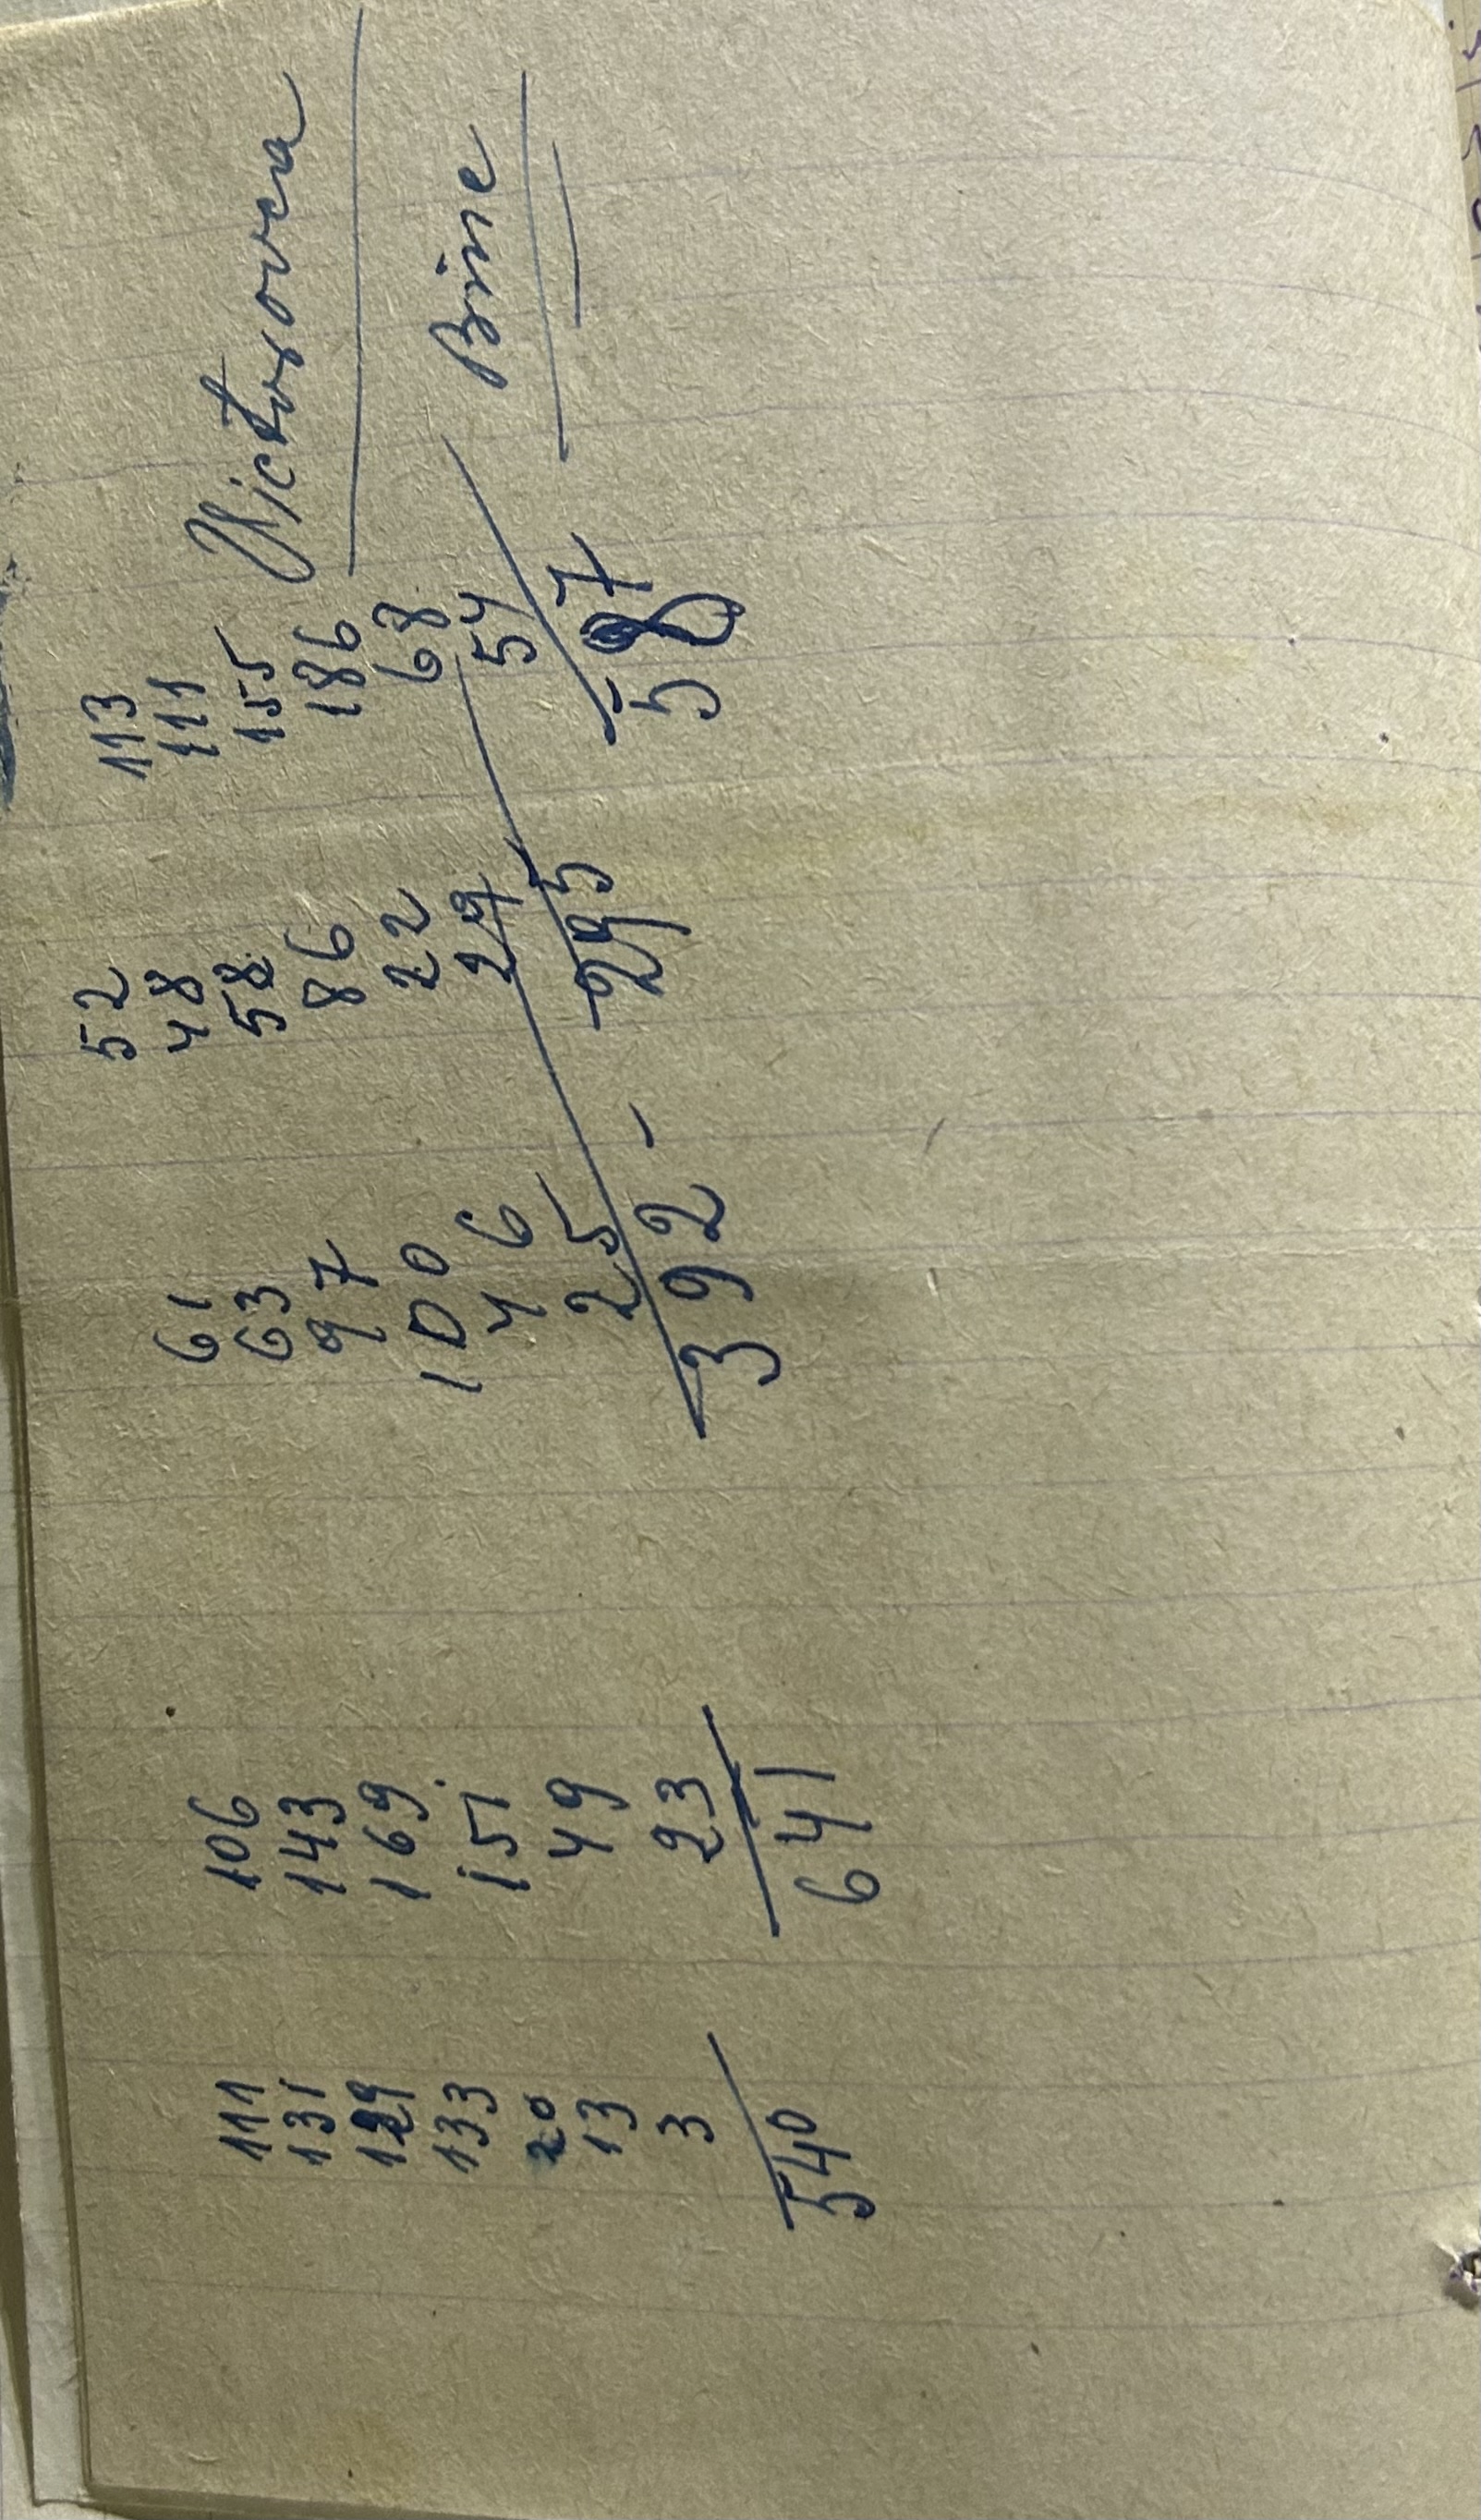 111
131
129
133
20
13
3
540
106
143
169
151
49
23
641
61
63
97
100
46
25
392 -
52
48
58
86
22
29
295
113
111
155
186
68
54
587
Victorovca
Bine